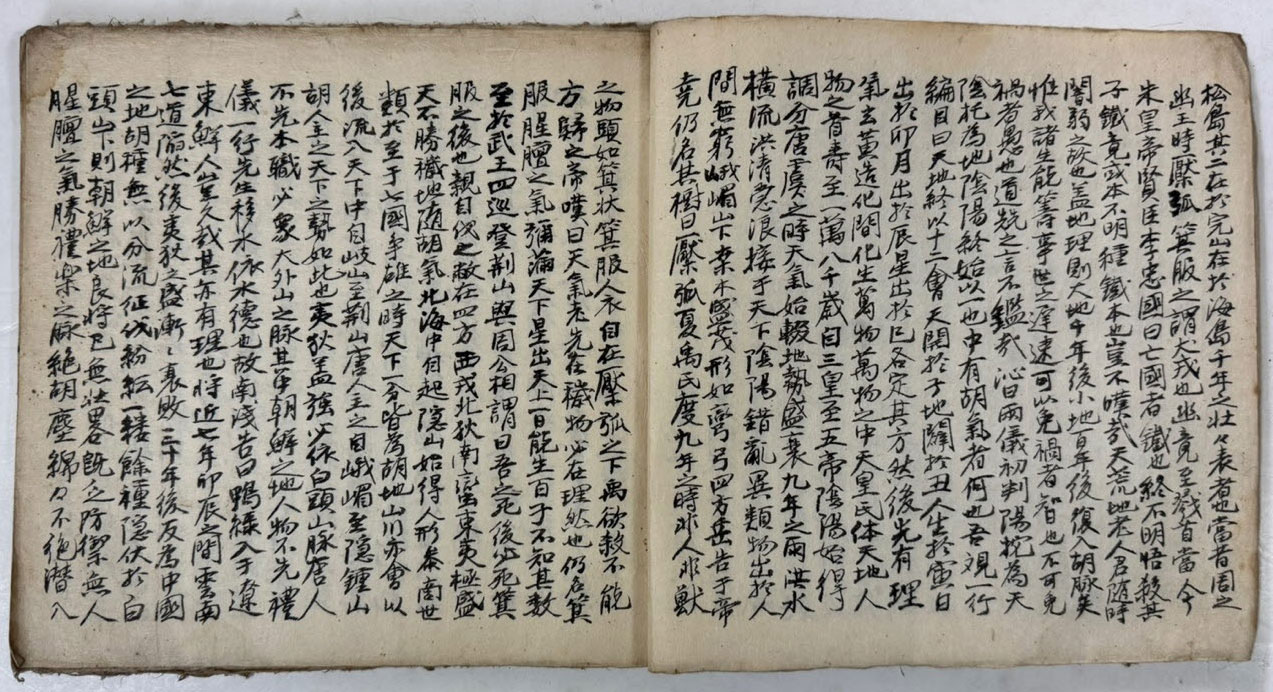 松島其二在於完山在於海島千年之壯々表者也當昔周之
幽王時壓弧箕服之謂犬戎也幽竟至戮首當今
朱皇帝賢臣李忠國曰亡國者鐵也終不明悟殺其
子鐵竟或本不明種鐵本也豈不嘆哉天荒地老人君随時
闇弱之故也盖地理則大地千年後小地百年後復入胡脉矣
惟我諸生能等亭世之遲速可以免禍者智也不可免
禍者愚也道詵之言不鑑哉沁曰兩儀初判陽抱為天
陰托為地陰陽終始以一也中有胡氣者何也吾觀一行
編目曰天地終以十二會天開於子地闢於丑人生於寅日
出於卯月出於辰星出於巳各定其方然後先有理
氣去黃造化間化生萬物萬物之中天皇氏体天地人
物之首壽至一萬八千歲自三皇至五帝陰陽始得
調分唐虞之時天氣始輟地勢盛衰九年之雨洪水
橫流洪清急浪接于天下陰陽錯亂異類物出於人
間無窮峨嵋山下桒木盛茂形如彎弓四方岳告于帝
堯仍名其樹曰壓弧夏禹氏度九年之時非人非獸
之物頭如箕狀箕服人衣自在壓弧之下禹欲救不能
方歸之帝嘆曰天氣老先在穢物必在理然也仍名箕
服腥膻之氣彌滿天下星出天上一日能生百子不知其数
至於武王四巡登荆山與周公相謂曰吾之死後必死箕
服之後也親自伐之敝在四方西戎北狄南蠻東夷極盛
天不勝穢地随胡氣北海中自起隱山始得人形桒南世
類於至于七國爭雄之時天下一分皆為胡地山川亦會以
後流入天下中自岐山至荆山唐人主之自峨嵋至隱鍾山
胡人主之天下之勢如此也夷狄盖強必依白頭山脉唐人
不先本職必象大外山之脉其爭朝鮮之地人物不先禮
儀一行先生移水依水德也故南淺告曰鴨綠入于遼
東鮮人豈久哉其亦有理也時近七年卯辰之間雲南
七道陷然後夷狄之盛漸々衰敗三十年後反為中國
之地胡種無以分流征伐紛紜一縷餘種隱伏於白
頭山下則朝鮮之地良將已無壯畧旣乏防禦無人
腥膻之氣勝禮樂之脉絶胡塵綿々不絶潜入